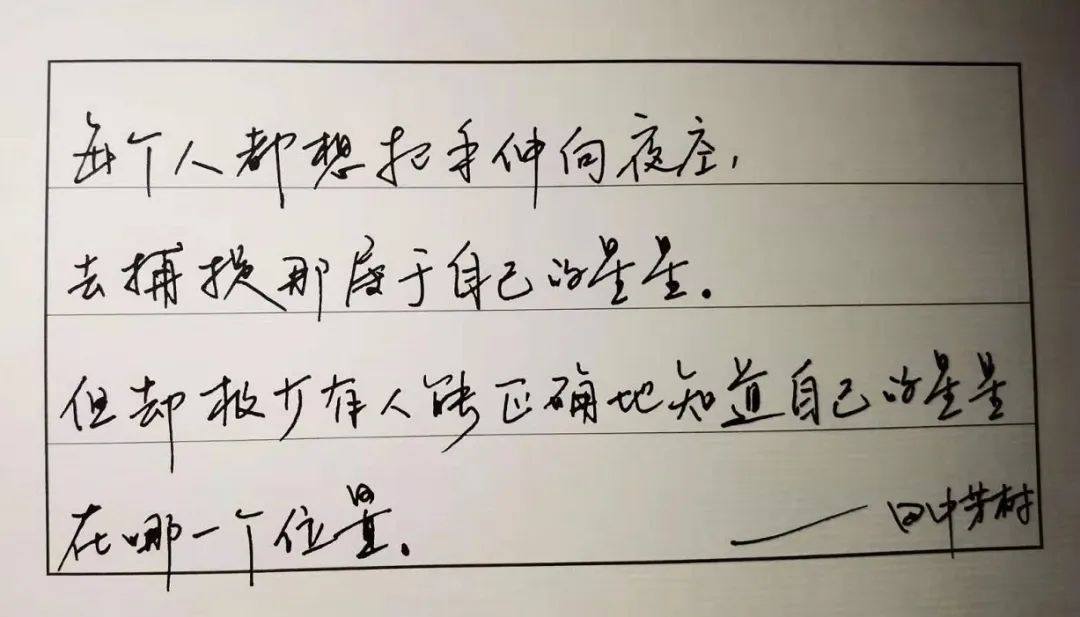 每个人都想把手伸向夜空，
去捕捉那属于自己的星星。
但却极少有人能正确地知道自己的星星
在哪一个位置。
——田中芳树